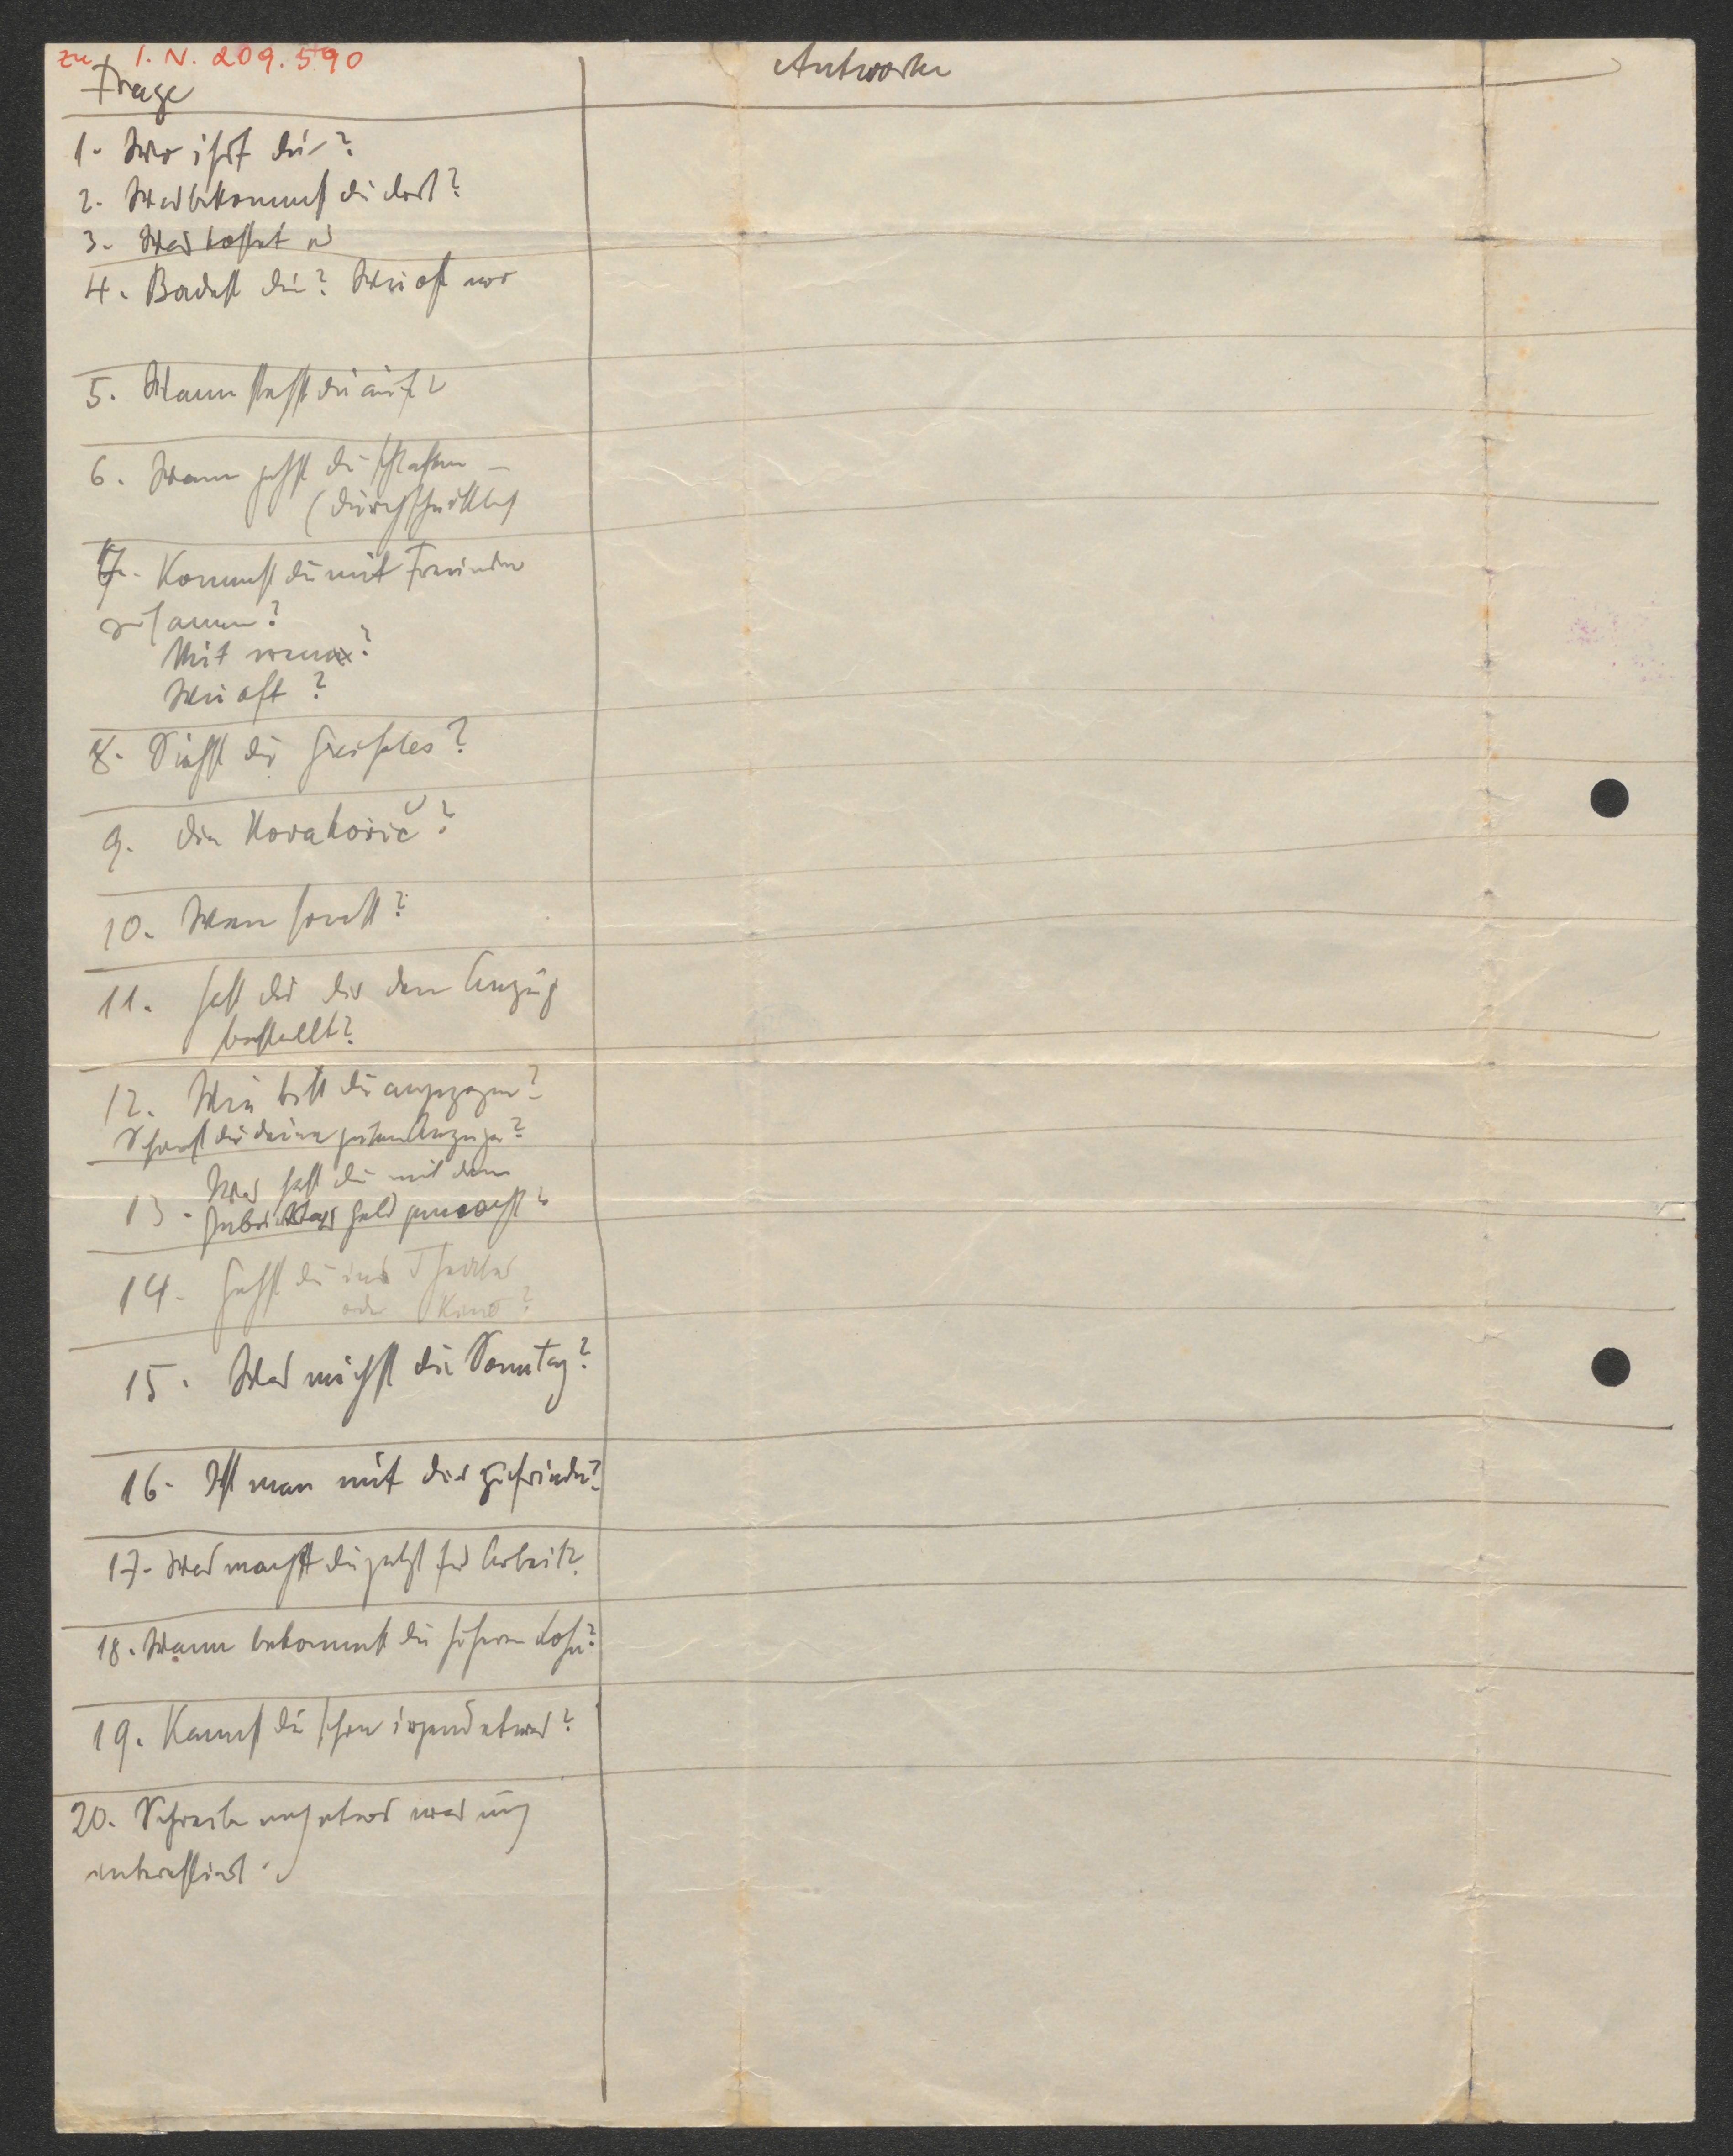 zu I. N. 209.590
Frage
Antworten
1. Wo isst du?
2. Was bekommst du dort?
3. Was kostet es
4. Badest du? Wie oft wo
5. Wann stehst du auf?
6. Wann gehst du schlafen –
(durchschnittlich
7. Kommst du mit Freunden
zusammen?
Mit wem?
Wie oft?
8. Siehst du
9. die Novaković?
10. Wen sonst?
11. Hast du dir den Anzug
bestellt?
12. Wie bist du angezogen?
Schonst du deine guten Anzüge?
13. Was hast du mit dem
Geburtstagsgeld gemacht?
14. Gehst du ins Theater
oder Kino?
15. Was machst du Sonntag?
16. Ist man mit dir zufrieden?
17. Was machst du jetzt für Arbeit?
18. Wann bekommst du höheren Lohn?
19. Kannst du schon irgend etwas?
20. Schreibe noch etwas was mich
interessiert.